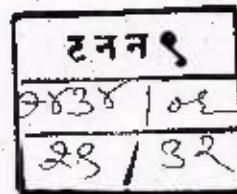 टनन ९
२४३४ / ०९
२९ / ३२